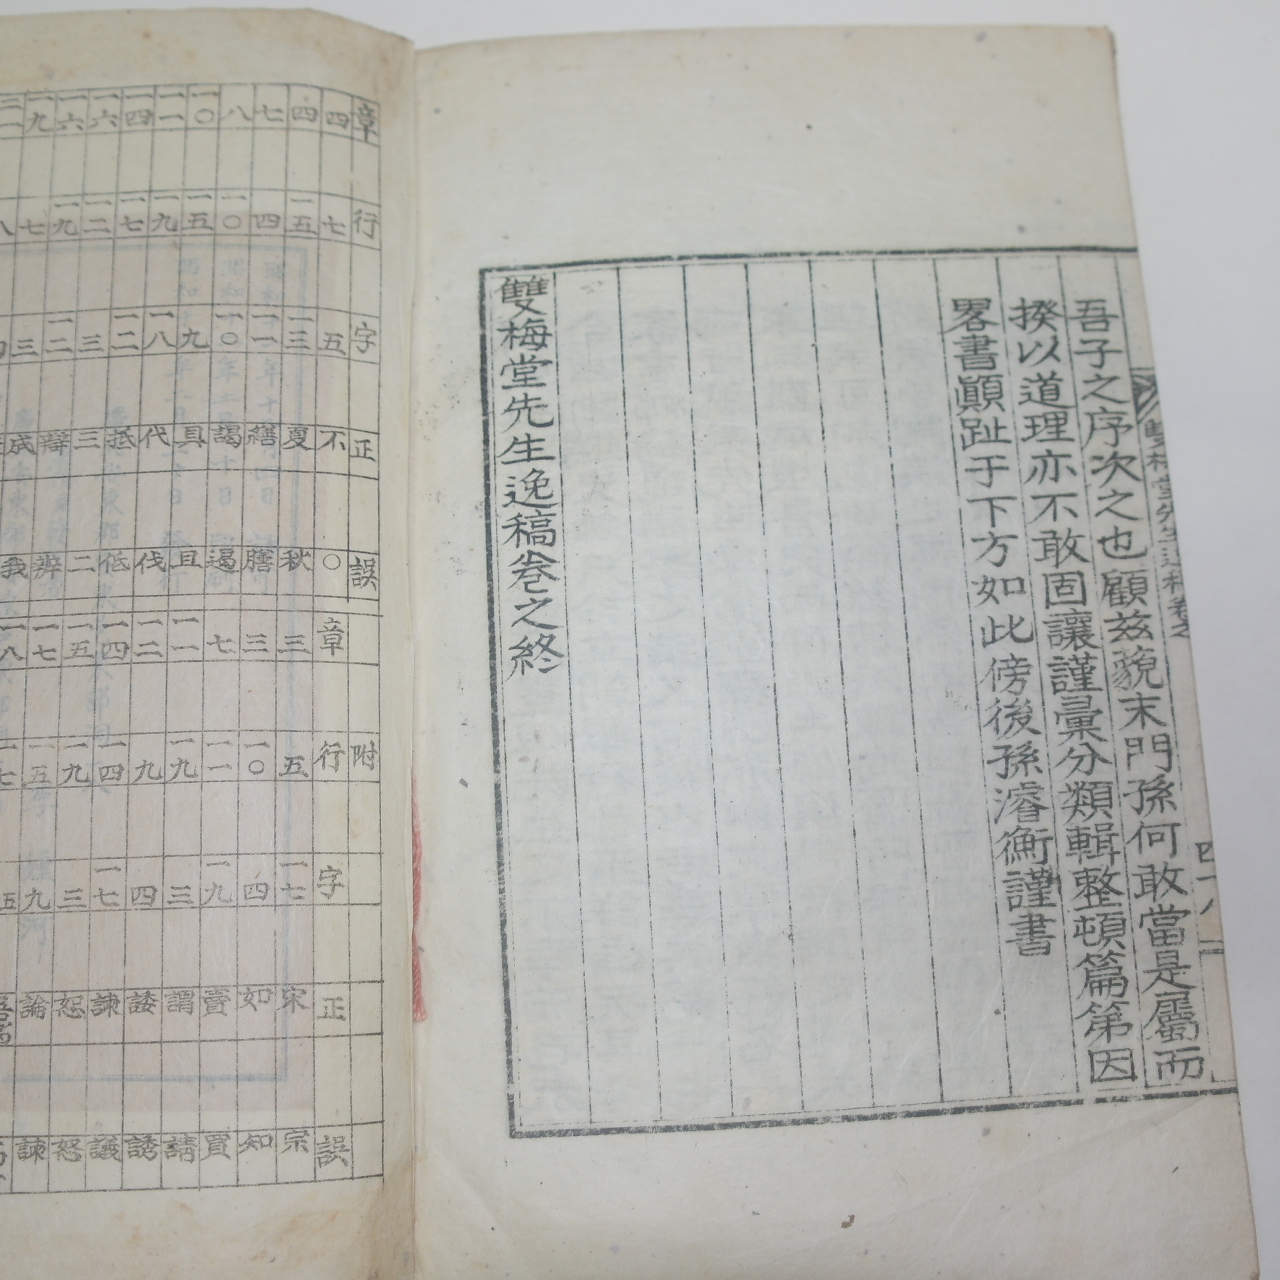 吾子之序次之也顧玆藐末門孫何敢當是屬而
揆以道理亦不敢固讓謹彙分類輯整頓篇第因
畧書顚趾于下方如此傍後孫濬衡謹書
雙梅堂先生逸稿卷之終
雙梅堂先生逸稿卷之
四十八
章 行 字 正 誤
四 七 五 不 〇
四 一五 一三 夏 秋
七 四 一一 繕 膳
八 一〇 一〇 謁 遏
一〇 一五 九 具 且
一一 一九 一八 代 伐
一四 一七 一二 抵 低
一六 一二 三 三 二
一六 一九 一二 辯 辨
一九 七 三 成 我
附
章 行 字 正 誤
三 五 一七 宋 宗
三 一〇 四 如 知
七 一一 一九 賣 買
一一 一九 三 謂 請
一二 九 四 諉 誘
一四 一四 一七 諫 議
一五 一九 三 恕 怒
一七 一五 九 論 諫